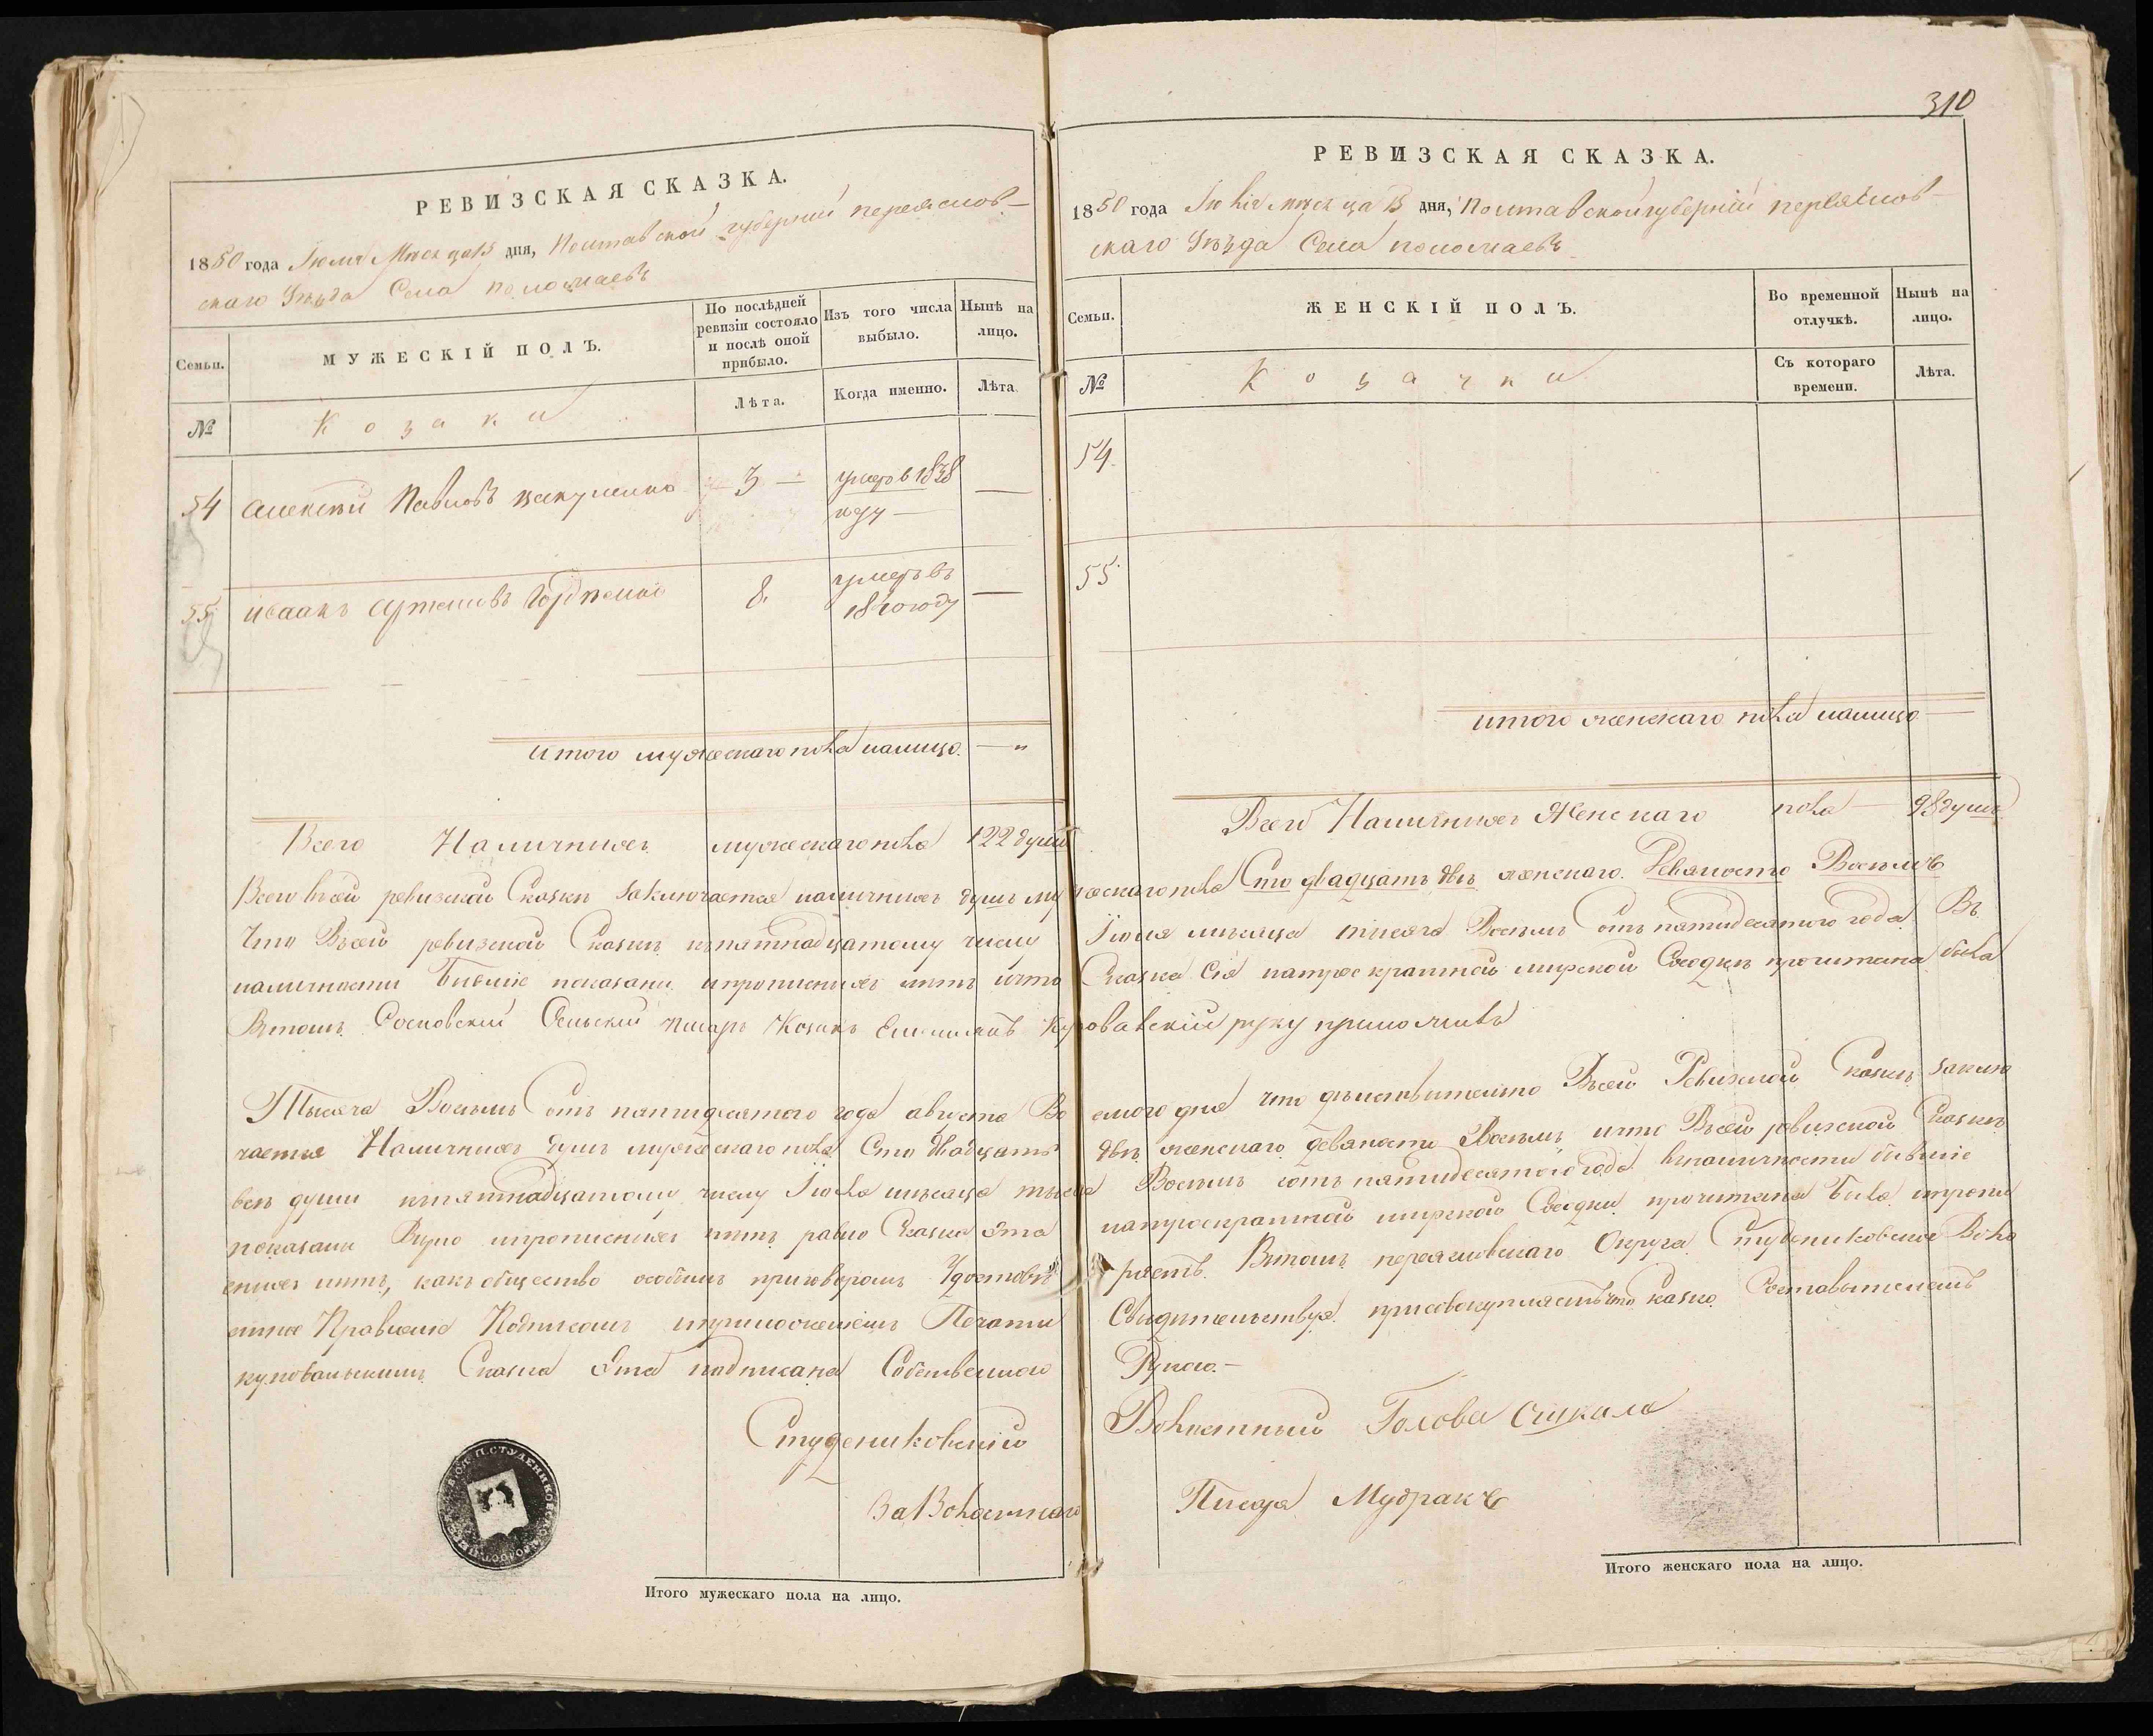 РЕВИЗСКАЯ СКАЗКА.
1850 года Июля Мѣсяца 15 дня, Полтавской губерніи переяслов-
скаго Уѣзда Села поможаевъ
Семьи.
МУЖЕСКІЙ ПОЛЪ.
По послѣдней ревизіи состояло и послѣ оной прибыло.
Изъ того числа выбыло.
Нынѣ на лицо.
№
Козаки
Лѣта.
Когда именно.
Лѣта.
54 Алексѣй Павловъ 3 — умеръ в 1838 году —
55 Исаакъ Артемовъ 8. умеръ въ году —
итого мужескаго пола налицо. — "
Всего Наличныхъ мужескаго пола 122 души
310
РЕВИЗСКАЯ СКАЗКА.
1850 года Июля мѣсяца 15 дня, Полтавской губерніи переяслов-
скаго Уѣзда Села поможаевъ
Семьи.
ЖЕНСКІЙ ПОЛЪ.
Во временной отлучкѣ.
Нынѣ на лицо.
№
Козачки
Съ котораго времени.
Лѣта.
54.
55.
итого женскаго пола налицо —
Всего Наличныхъ Женскаго пола — 98 душъ
Всего въсей ревизской Сказкѣ заключается наличныхъ душъ мужескаго пола Сто двадцать двѣ женскаго. Девяносто Восемъ
Что Въсей ревизской Сказкѣ къпятнадцатому числу Іюля мѣсяца тысяча Восемь Сотъ пятидесятого года Въ
наличности бывшіе показаны ипрописныхъ нѣтъ ичто Сказка Сія натроекратной мирской Сходкѣ прочитана была
Вътомъ Сосновский Сельский писарь Козакъ руку приложилъ
Тысяча Восемь Сотъ пятидесятого года августа дня что дѣйствительно Въсей Ревизской Сказкѣ заклю
чается Наличныхъ душъ мужескаго пола Сто двадцать двѣ женскаго девяносто Восемь ичто Въсей ревизской Сказкѣ
всѣ души къпятнадцатому числу Іюля мѣсяца тысяча Восемь сотъ пятидесятого года вналичности бывшіе
показаны Вѣрно ипрописныхъ нѣтъ равно Сказка Эта натроекратной мирской Сходки прочитана была
нѣтъ, какъ общество особымъ приговоромъ Удостовѣряетъ. Вътомъ переясловскаго Округа Студениковское Воло
стное Правленіе Подписомъ иприложеніемъ Печати Свидѣтельствуя присовокупляетъ что
Сказка Эта подписана Собственною Рукою.—
Студениковскій Волостный Голова
За Волостнаго Писаря Мудракъ
Итого мужескаго пола на лицо.
Итого женскаго пола на лицо.